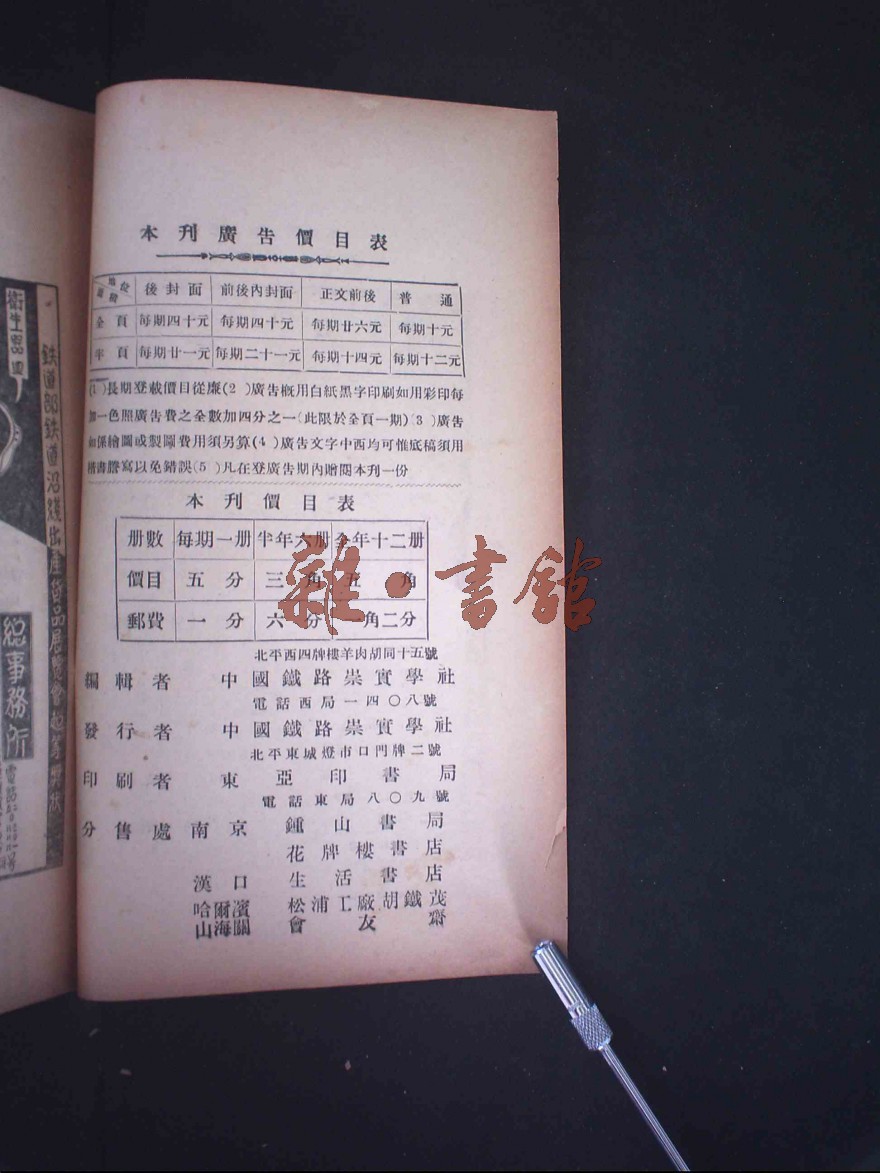 本刊廣告價目表
地位 面積 後封面 前後內封面 正文前後 普通
全頁 每期四十元 每期四十元 每期廿六元 每期十元
半頁 每期廿一元 每期二十一元 每期十四元 每期十二元
(1)長期登載價目從廉(2)廣告概用白紙黑字印刷如用彩印每
加一色照廣告費之全數加四分之一(此限於全頁一期)(3)廣告
如係繪圖或製圖費用須另算(4)廣告文字中西均可惟底稿須用
楷書謄寫以免錯誤(5)凡在登廣告期內贈閱本刊一份
本刊價目表
册數 每期一册 半年六册 全年十二册
價目 五分 三角 五角
郵費 一分 六分 一角二分
北平西四牌樓羊肉胡同十五號
編輯者 中國鐵路崇實學社
電話西局一四〇八號
發行者 中國鐵路崇實學社
北平東城燈市口門牌二號
印刷者 東亞印書局
電話東局八〇九號
分售處 南京 鍾山書局
花牌樓書店
漢口 生活書店
哈爾濱 松浦工廠胡鐵茂
山海關 會友齋
雜·書館
衛生器具
鉄道部鉄道沿綫出產貨品展覽會超等獎狀
總事務所